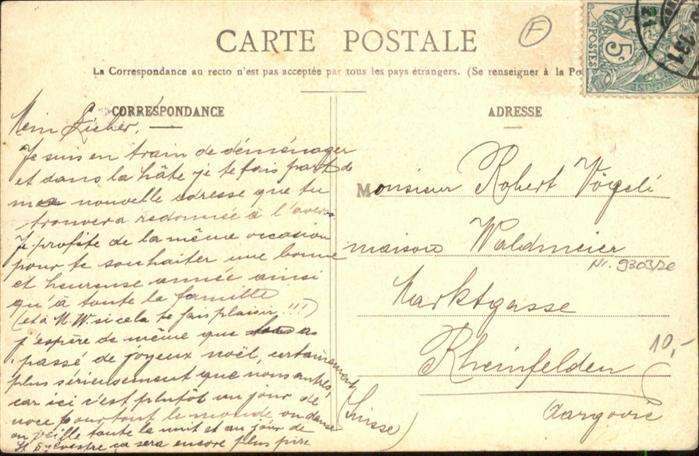 CARTE POSTALE
F
5c
POSTES
La Correspondance au recto n'est pas acceptée par tous les pays étrangers. (Se renseigner à la Po
CORRESPONDANCE
ADRESSE
Mein Lieber,
Je suis en train de déménager
et dans la hâte je te fais part de
ma nouvelle adresse que tu
trouvera redonnée à l'avers
Je profite de la même occasion
pour te souhaiter une bonne
et heureuse année ainsi
qu'à toute la famille
(et à M W si cela te fais plaisir !!!)
j'espère de même que as
passé de joyeux noël, certainement
plus sérieusement que nous autres,
car ici c'est plutôt un jour de
noce pour tout le monde, on danse
on veille toute la nuit et au jour de
St Sylvestre ça sera encore plus pire
Monsieur Robert Vögeli
maison Waldmeier
Nr. 9303/20
Marktgasse
10,-
Rheinfelden
(Suisse)
Aargovie